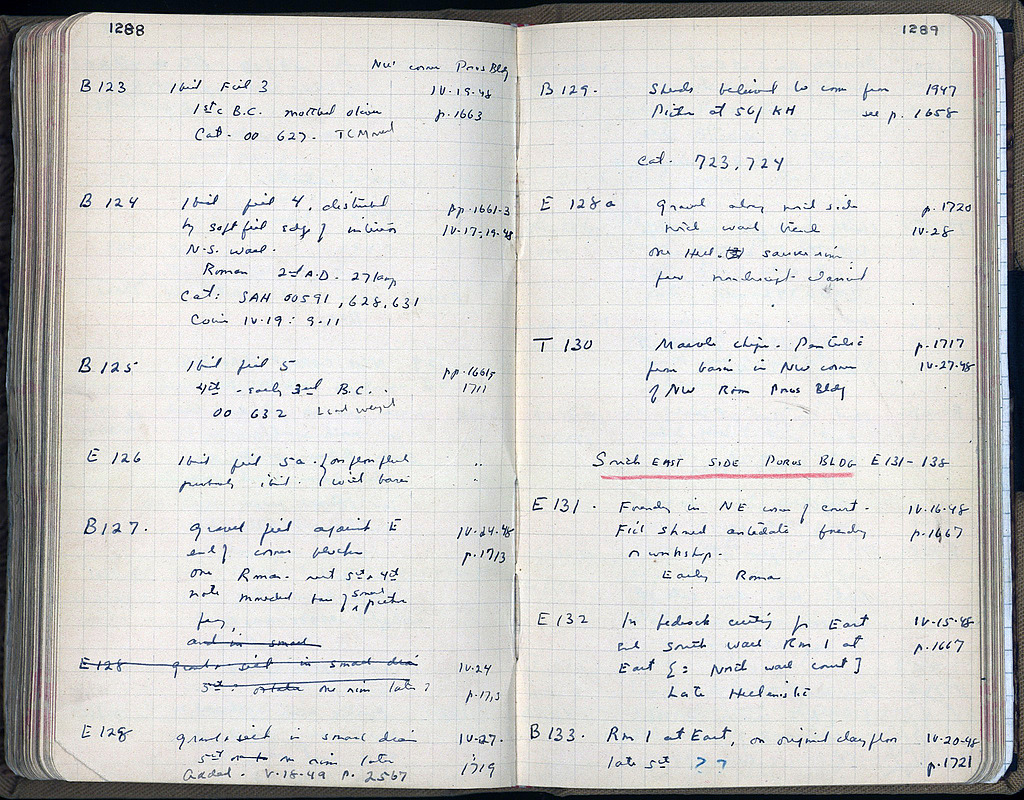 1288
NW corner Poros Bldg
B 123 Ibid Fill 3 IV-19-48
1st c B.C. mottled olive p. 1663
Cat. OO 627. TCMoved
B 124 Ibid fill 4, disturbed pp. 1661-3
by soft fill edge of interior IV-17-19-48
N-S. wall.
Roman 2nd A.D. 27 lamp
Cat: SAH OO591, 628, 631
Coin IV-19: 9-11
B 125 Ibid fill 5 pp. 1661,
4th - early 3rd B.C. 1711
OO 632 Lead weight
E 126 Ibid fill 5a. "
probably ibid. with basin "
B 127. gravel fill against E IV-24-48
end of corner blocks p. 1713
one Roman. rest 5th & 4th
note
and in small
E 128 gravel & silt in small drain IV-24
5th: one rim late?
E 128 gravel & silt in small drain IV-27.
5th one rim late 1719
Added. V-18-49 P. 2567
1289
B 129. Sherds believed to come from 1947
Pithos at 56/KH see p. 1658
Cat. 723, 724
E 128a gravel along north side p. 1720
north wall trench IV-28
one Hell. saucer rim.
few nondescript classical
T 130 Marble chips. Pentelic p. 1717
from basin in NW corner IV-27-48
of NW Rm Poros Bldg
South EAST SIDE POROS BLDG E131-138
E 131. Foundry in NE corner of court. IV-16-48
Fill should antedate foundry p. 1667
or workshop.
Early Roman
E 132 In bedrock cutting for East IV-15-48
end south wall Rm 1 at p. 1667
East [= North wall court]
Late Hellenistic
B 133. Rm 1 at East, on original clay floor IV-20-48
late 5th ?? p. 1721